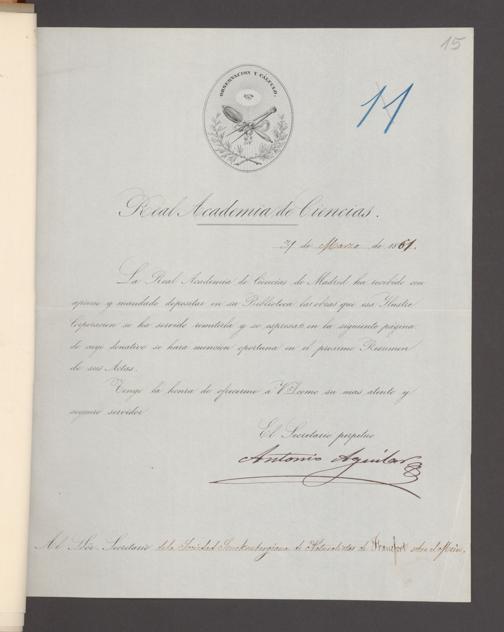 15
11
OBSERVACION Y CÁLCULO.
Real Academia de Ciencias.
31 de Marzo de 1861.
La Real Academia de Ciencias de Madrid ha recibido con
aprecio y mandado depositar en su Biblioteca las obras que esa Ilustre
Corporacion se ha servido remitirla y se espresan en la siguiente página
de cuyo donativo se hará mencion oportuna en el próximo Resumen
de sus Actas.
Tengo la honra de ofrecerme á V.S. como su mas atento y
seguro servidor
El Secretario perpétuo
Antonio Aguilar
Al Sõr. Secretario de la Sociedad Senckenbergiana de Naturalistas de Francfort sobre el Mein.